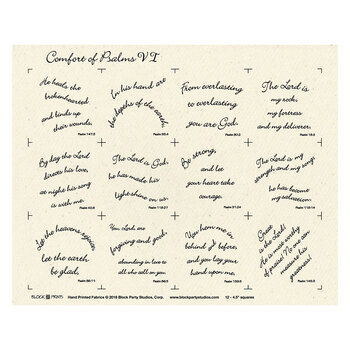 Comfort of Psalms VI
He heals the
brokenhearted
and binds up
their wounds.
Psalm 147:3
In his hand are
the depths of the earth.
Psalm 95:4
From everlasting
to everlasting
you are God.
Psalm 90:2
The Lord is
my rock,
my fortress
and my deliverer.
Psalm 18:2
By day the Lord
directs his love,
at night his song
is with me.
Psalm 42:8
The Lord is God,
he has made his
light shine on us.
Psalm 118:27
Be strong,
and let
your heart take
courage.
Psalm 31:24
The Lord is my
strength and my song;
he has become
my salvation.
Psalm 118:14
Let the heavens rejoice,
let the earth
be glad.
Psalm 96:11
You, Lord, are
forgiving and good,
abounding in love to
all who call on you.
Psalm 86:5
You hem me in
behind and before,
and you lay your
hand upon me.
Psalm 139:5
Great
is the Lord!
He is most worthy
of praise! No one can
measure his
greatness!
Psalm 145:3
BLOCK PRINTS
Hand Printed Fabrics © 2018 Block Party Studios, Corp.
www.blockpartystudios.com
12 - 4.5" squares